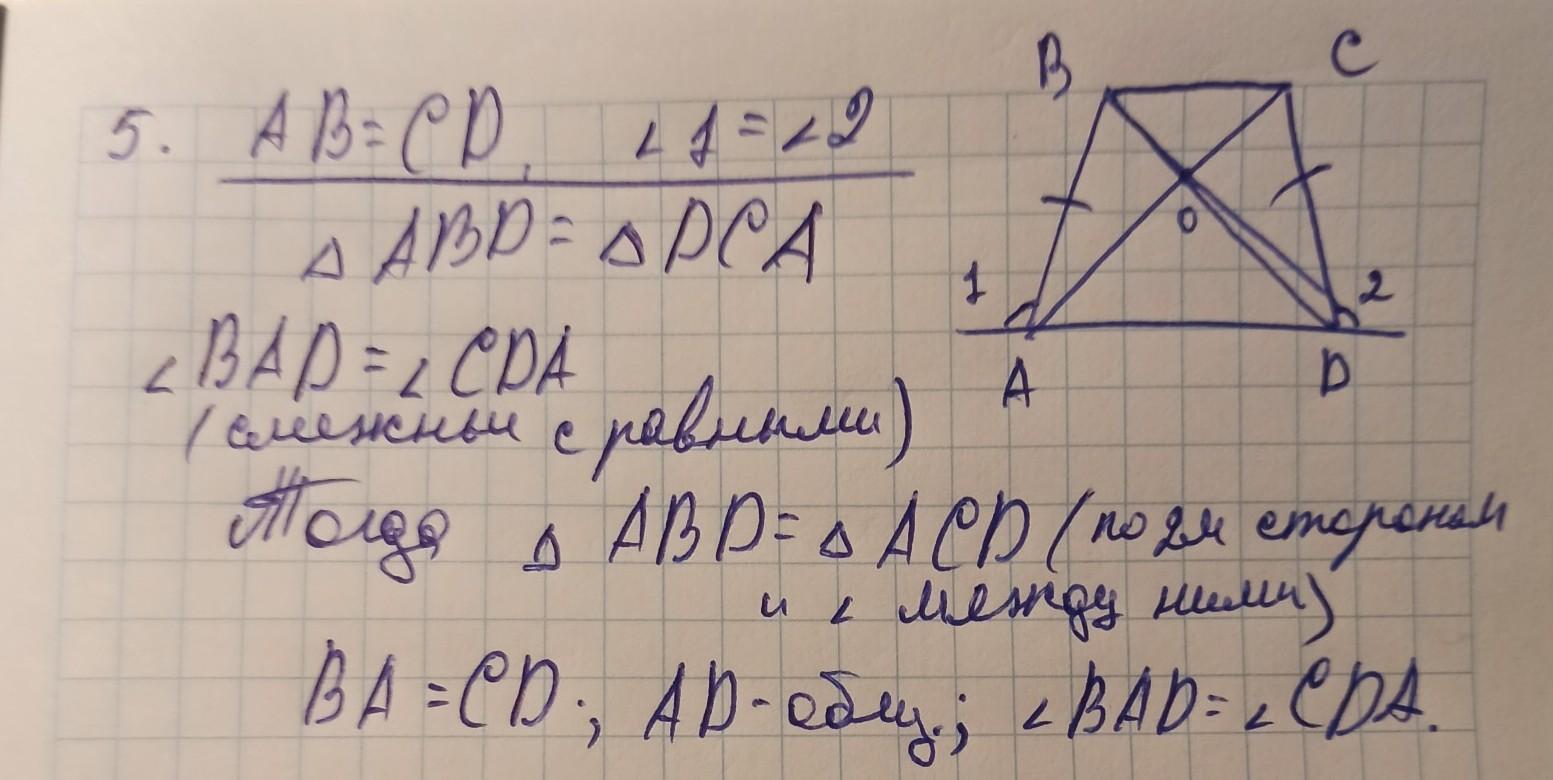 5. AB=CD, ∠1=∠2
△ABD=△DCA
∠BAD=∠CDA
(смежные с равными)
Тогда △ABD=△ACD (по 2м сторонам
и ∠ между ними)
BA=CD; AD-общ.; ∠BAD=∠CDA.
B
C
O
1
2
A
D